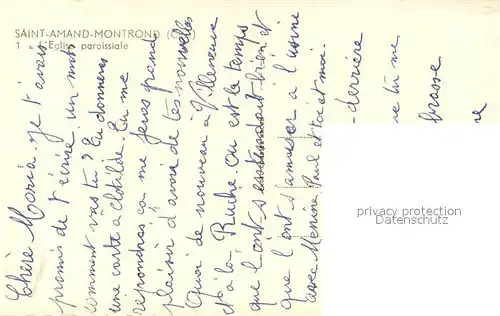 SAINT-AMAND-MONTROND
1 L'Eglise paroissiale
Chère Maria. Je t'avais
promis de t'écrire un mot
comment vas tu? Tu donneras
une carte à Clotilde. Tu me
répondras ça me feras grand
plaisir d'avoir de tes nouvelles
Quoi de nouveau à Villeneuve
et à la Ruche. Ou est le temps
que l'ont s'entendait bien et
que l'ont s'amuser à l'usine
avec Paul et toi et moi.
derrière
privacy protection
Datenschutz